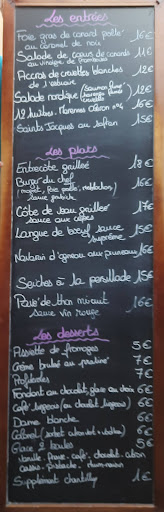 Les entrées
Foie gras de canard poêlé 16€
au caramel de noix
Salade de cœurs de canards 14€
au vinaigre de framboise
Accras de crevettes blanches 12€
de l'estuaire
Salade nordique 16€
12 huîtres Marennes Oléron n°4 16€
Saint Jacques au safran 15€
Les plats
Entrecôte grillée 18€
Burger du chef 16€
sauce
Côte de veau grillée 17€
sauce aux cèpes
Langue de bœuf sauce 15€
suprême
Navarin d'agneau aux pruneaux 16€
Seiches à la persillade 15€
Pavé de thon mi-cuit 15€
sauce vin rouge
Les desserts
Assiette de fromages 5€
Crème brulée au praliné 7€
Profiteroles 7€
Fondant au chocolat, glace au choix 6€
Café liégeois (ou chocolat liégeois) 6€
Dame blanche 6€
Colonel 6€
Glace 2 boules 5€
vanille, fraise, café, chocolat, citron
cassis, pistache, rhum-raisin
Supplément chantilly 1€